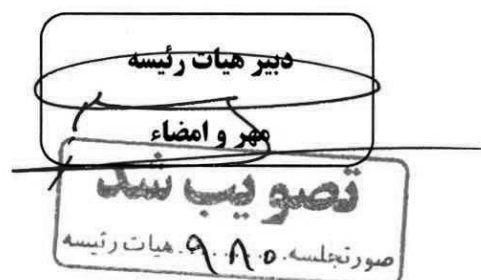 دبیر هیات رئیسه
مهر و امضاء
تصویب شد
صورتجلسه ۹۸۵ هیات رئیسه